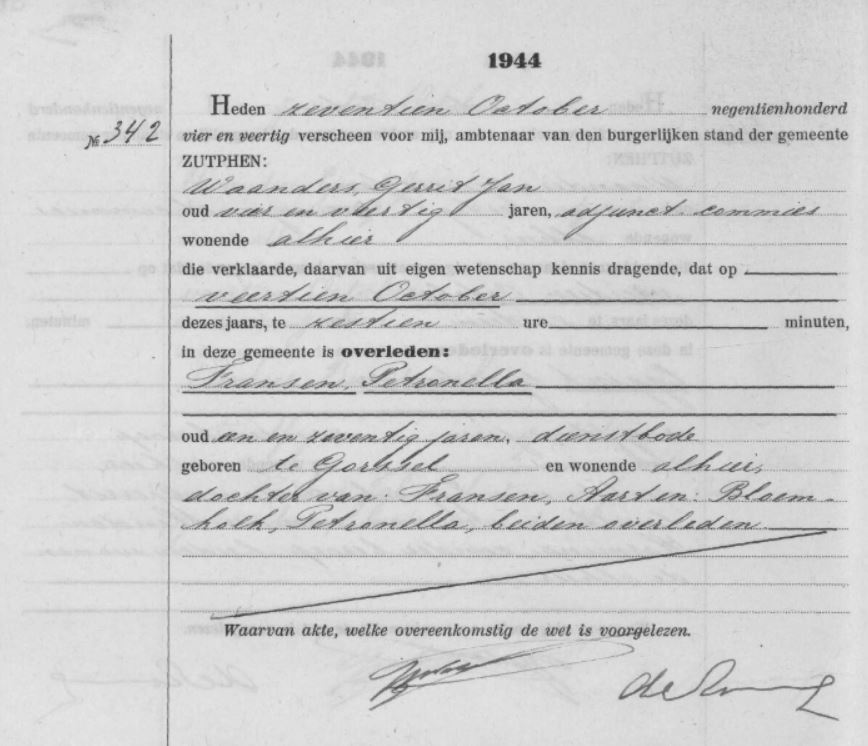 1944
Heden zeventien October negentienhonderd
№ 342 vier en veertig verscheen voor mij, ambtenaar van den burgerlijken stand der gemeente
ZUTPHEN:
Waanders, Gerrit Jan
oud vier en veertig jaren, adjunct. commies
wonende alhier
die verklaarde, daarvan uit eigen wetenschap kennis dragende, dat op
veertien October
dezes jaars, te zestien ure minuten,
in deze gemeente is overleden:
Fransen, Petronella
oud een en zeventig jaren, dienstbode
geboren te Gorssel en wonende alhier,
dochter van: Fransen, Aart en: Bloem-
kolk, Petronella, beiden overleden
Waarvan akte, welke overeenkomstig de wet is voorgelezen.